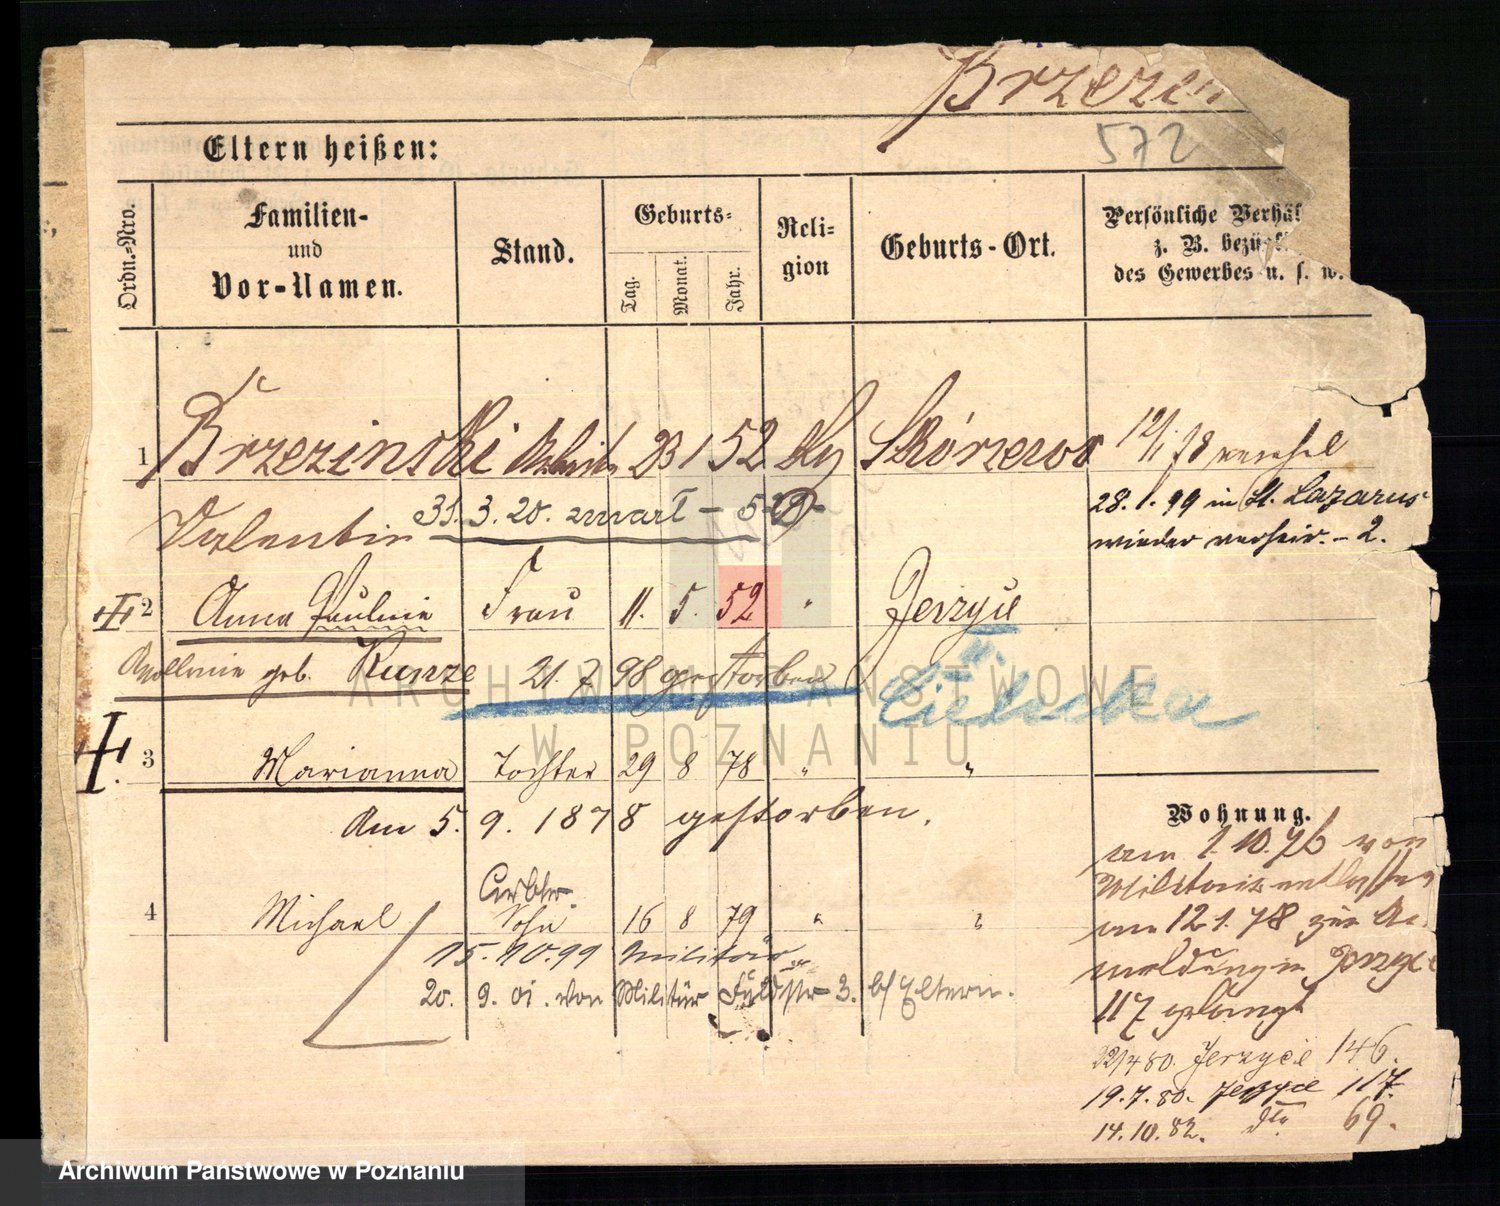 Brzezin
572
Eltern heißen:
Ordn.-Nro.
Familien-
und
Vor-Namen.
Stand.
Geburts-
Tag.
Monat.
Jahr.
Reli-
gion
Geburts-Ort.
Persönliche Verhäl
z. B. bezügl
des Gewerbes u. s. w.
1 Brzezinski Arbeiter 23 1 52 Skórzewo
Valentin 31. 3. 20.
12/1 78 verehel
28. 1. 99 in St. Lazarus
wieder verheir. - 2.
2 Anna Paulnie Frau 11. 5. 52 " Jerzyce
Apollonia geb. Kunze 21. 7 98 gestorben
3 Marianna Tochter 29 8 78 " "
Am 5. 9. 1878 gestorben.
4 Michael Arbtr. Sohn 16 8 79 " "
15. 10. 99 Militär
20. 9. 01. von Militär 3. b/ Eltern.
Wohnung.
am 1. 10. 76 von
Militair entlassen
am 12. 1. 78 zur An-
meldung in Jerzyce
117 gelangt
22/4 80. Jerzyce 146.
19. 7. 80. Jerzyce 117.
14. 10. 82. dto 69.
ARCHIWUM PAŃSTWOWE
W POZNANIU
Archiwum Państwowe w Poznaniu